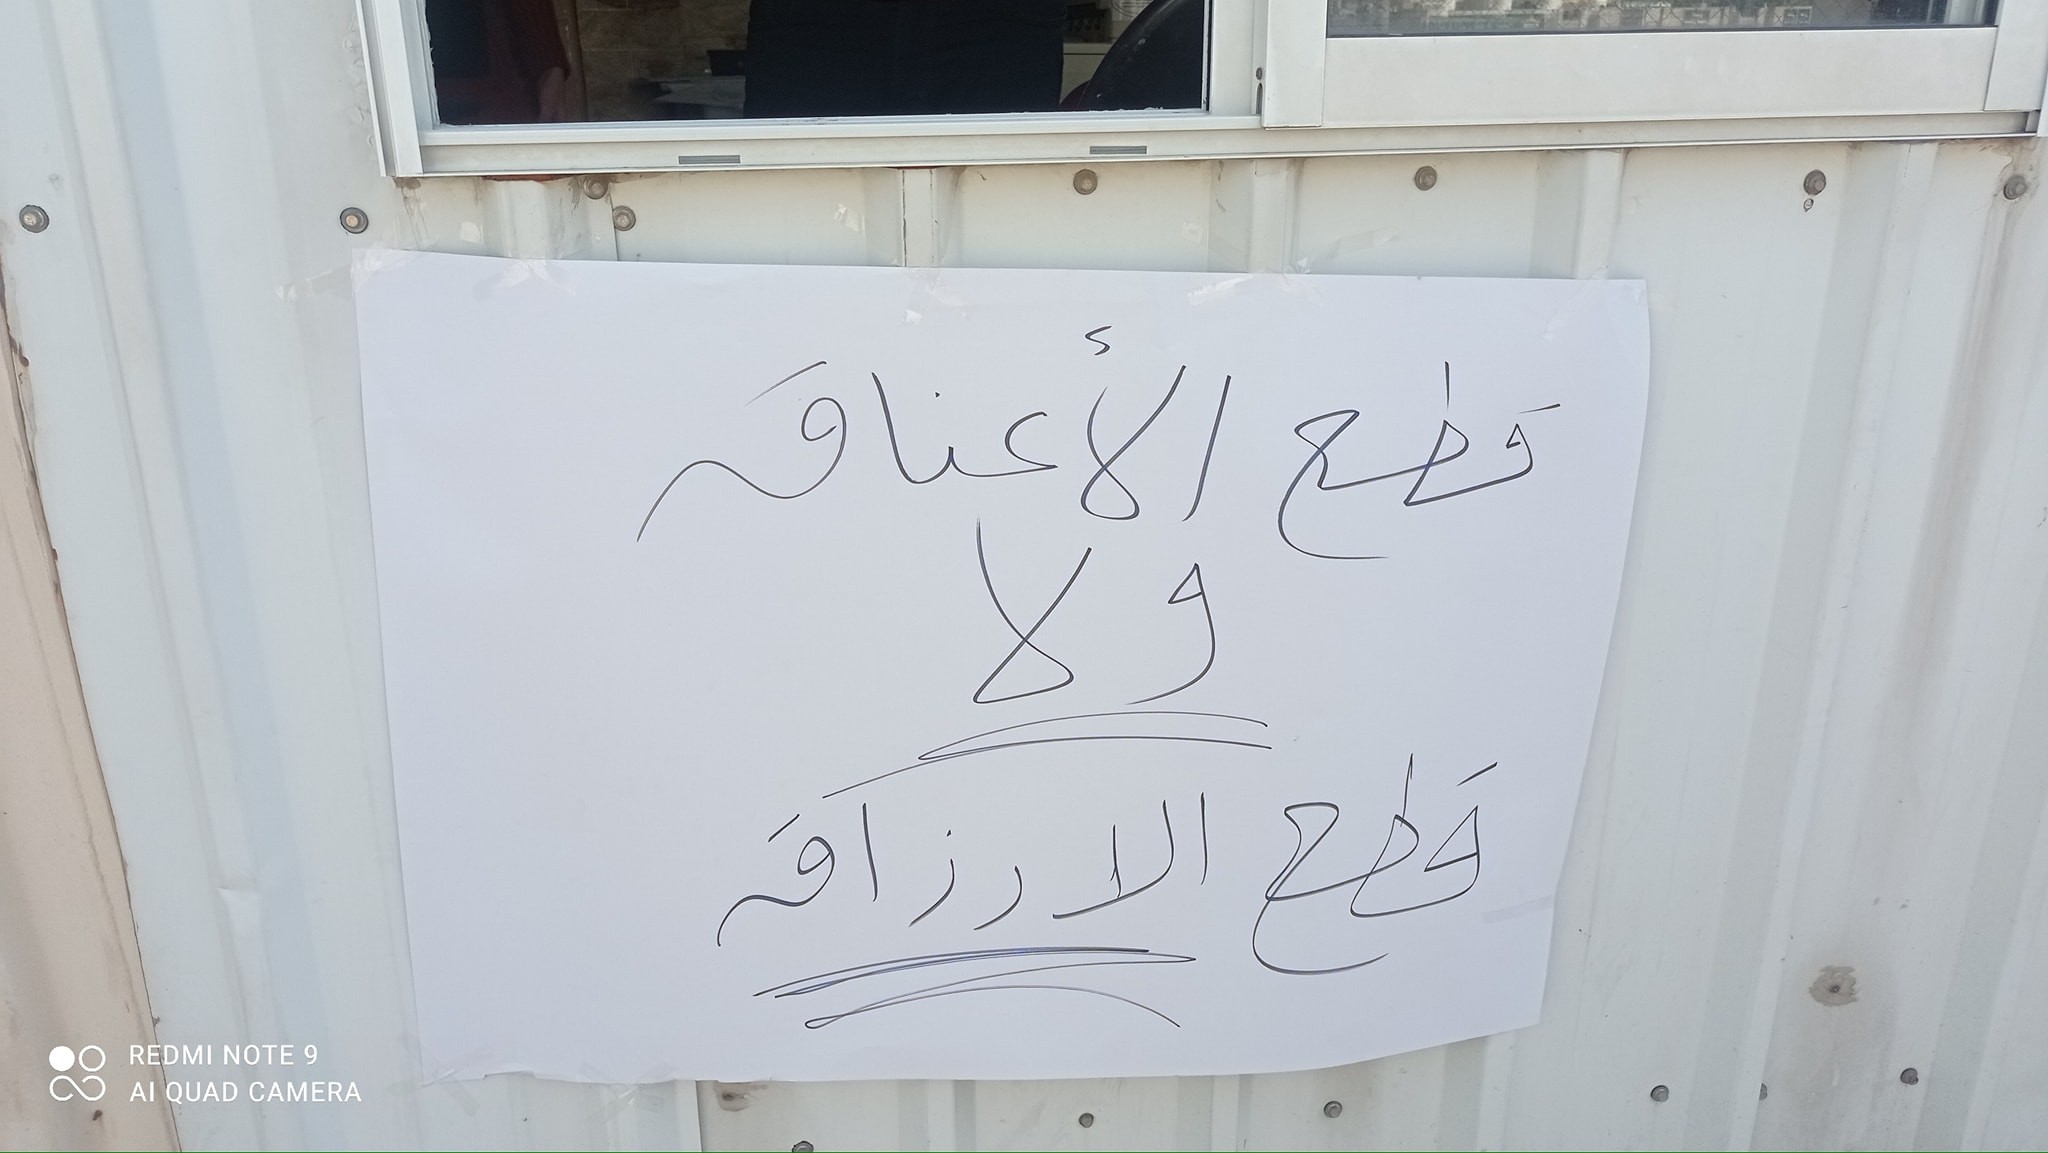 قطع الأعناق
ولا
قطع الارزاق
REDMI NOTE 9
AI QUAD CAMERA